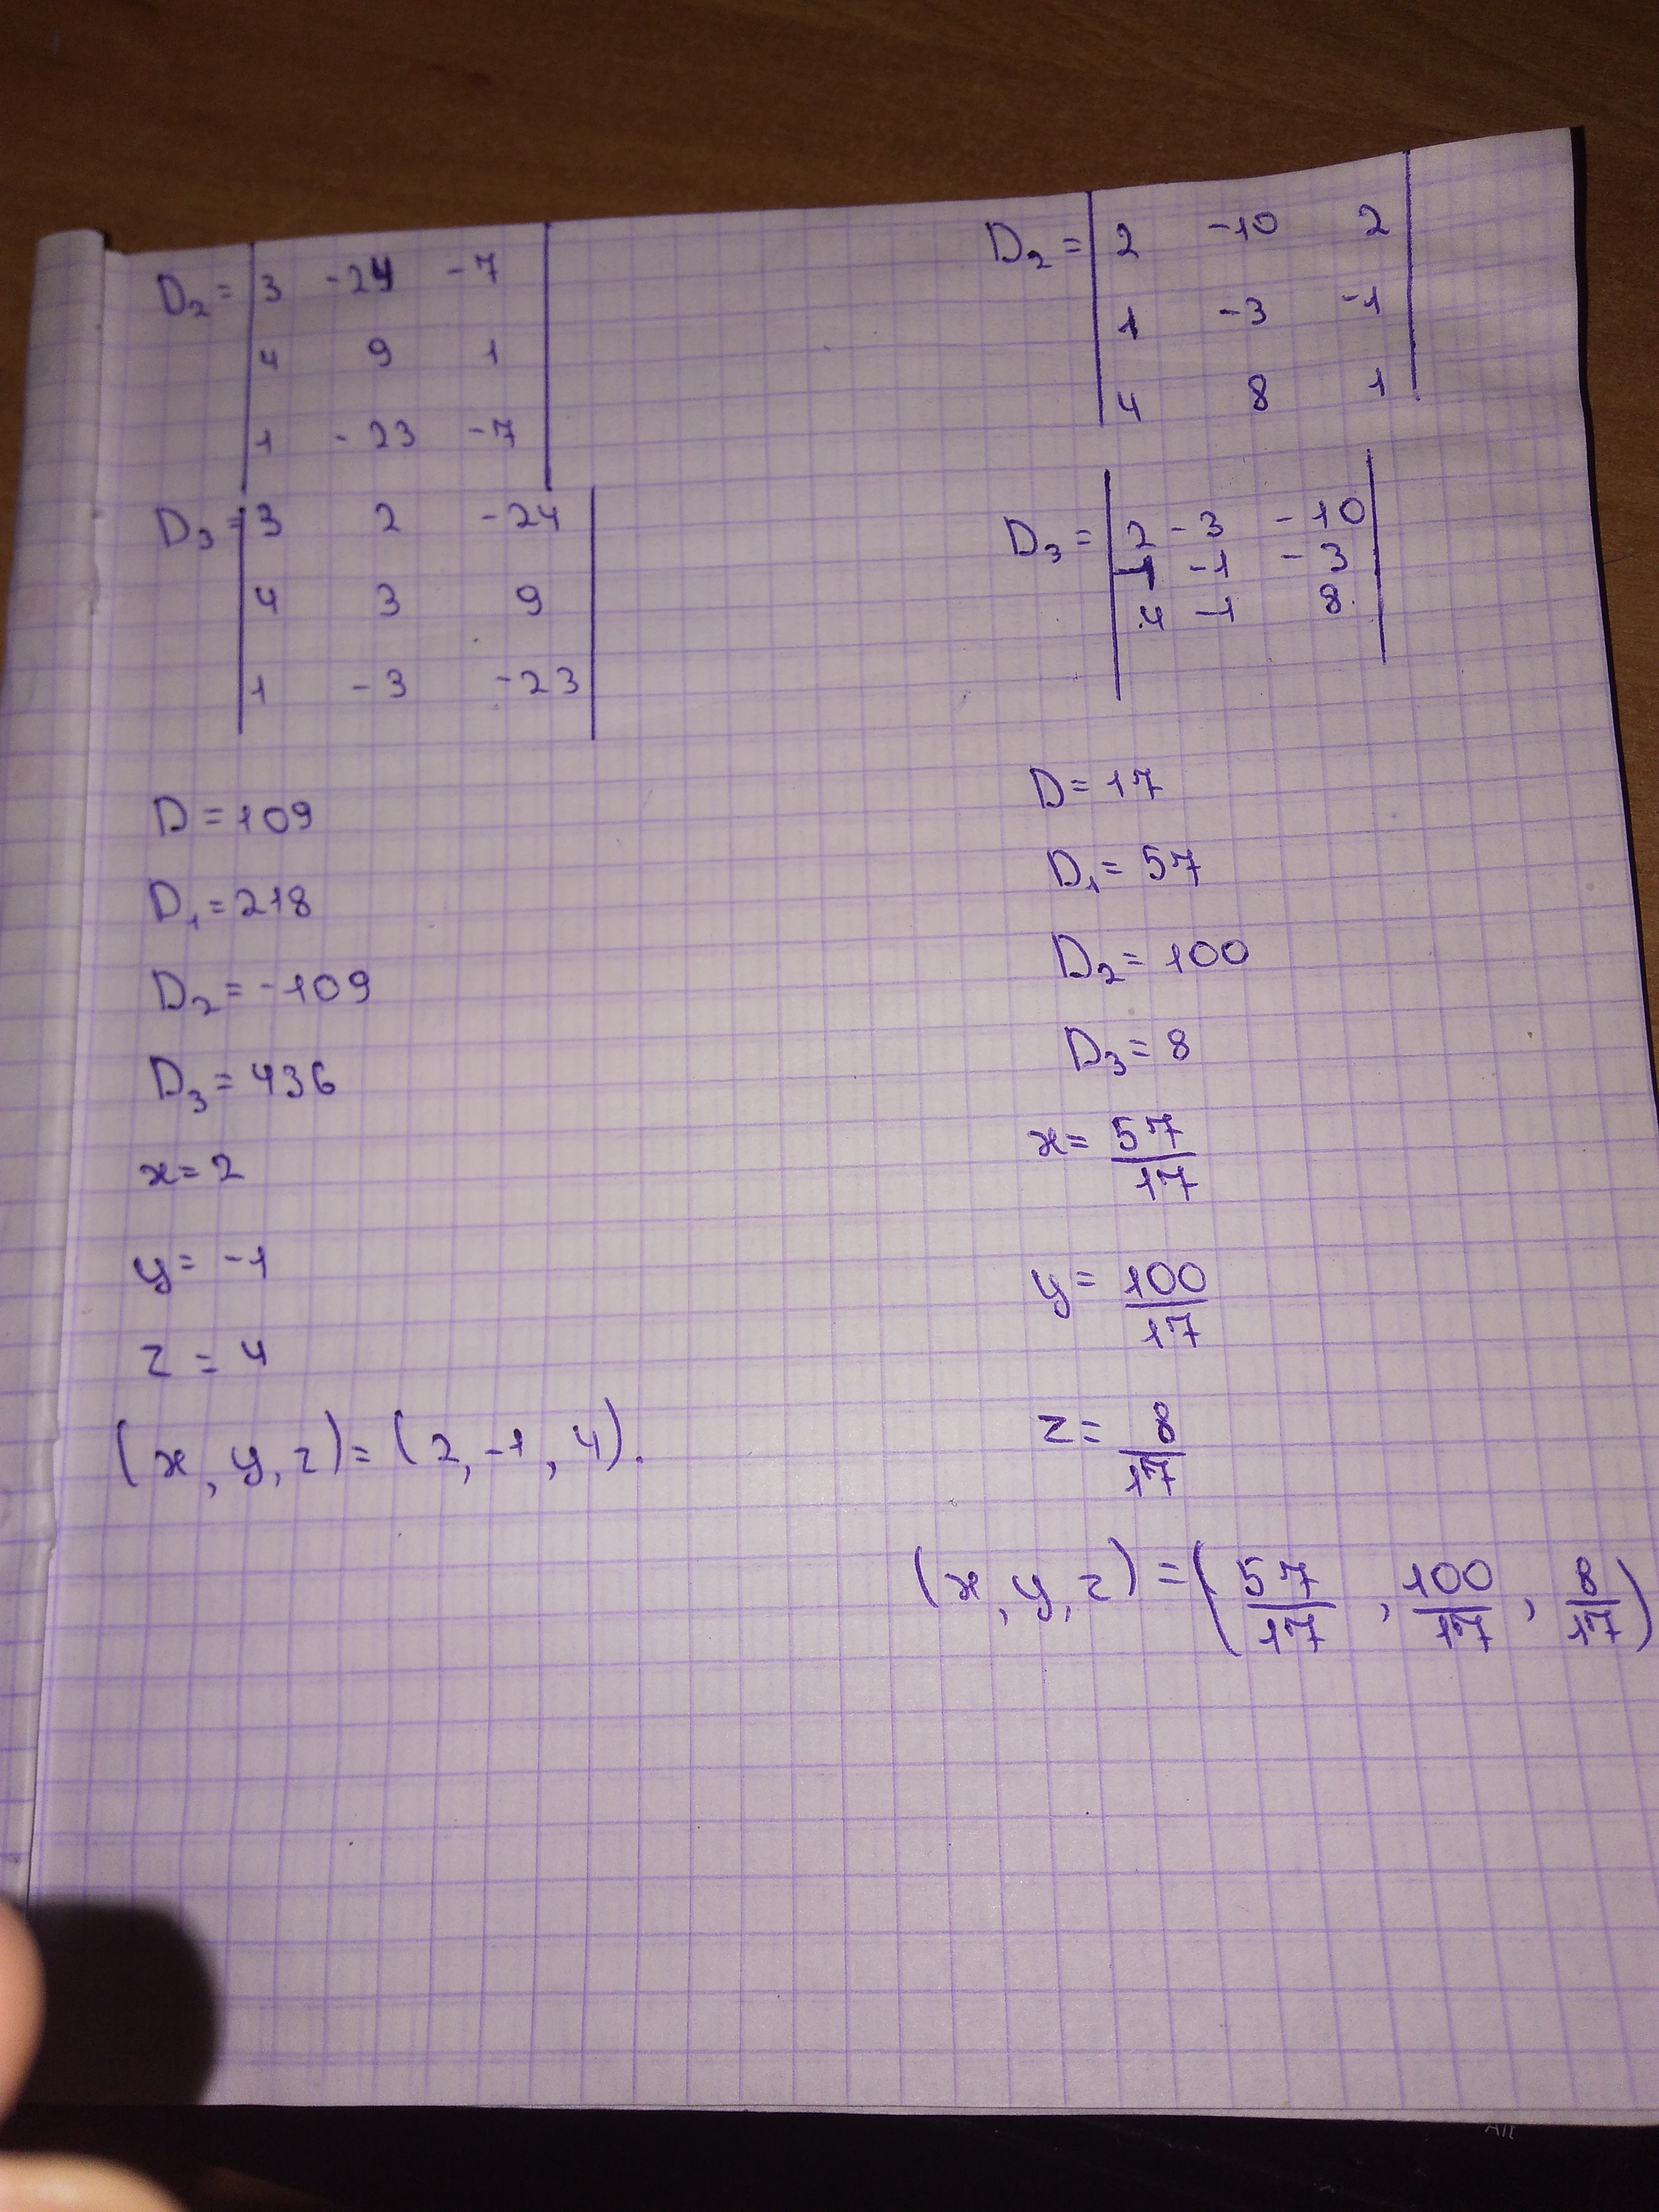 D₂ = | 3 -24 -7 |
| 4 9 1 |
| 1 -23 -7 |
D₃ = | 3 2 -24 |
| 4 3 9 |
| 1 -3 -23 |
D = 109
D₁ = 218
D₂ = -109
D₃ = 436
x = 2
y = -1
z = 4
(x, y, z) = (2, -1, 4).
D₂ = | 2 -10 2 |
| 1 -3 -1 |
| 4 8 1 |
D₃ = | 2 -3 -10 |
| 1 -1 -3 |
| 4 -1 8 |
D = 17
D₁ = 57
D₂ = 100
D₃ = 8
x = 57/17
y = 100/17
z = 8/17
(x, y, z) = (57/17, 100/17, 8/17)